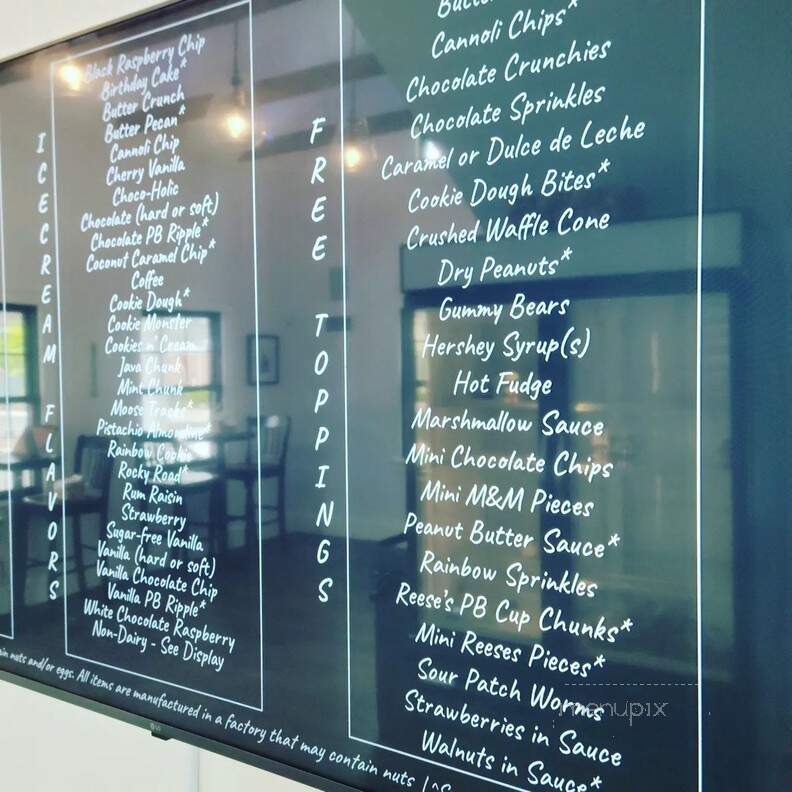 ICECREAM FLAVORS
Black Raspberry Chip
Birthday Cake*
Butter Crunch
Butter Pecan*
Cannoli Chip
Cherry Vanilla
Choco-Holic
Chocolate (hard or soft)
Chocolate PB Ripple*
Coconut Caramel Chip*
Coffee
Cookie Dough*
Cookie Monster
Cookies n' Cream
Java Chunk
Mint Chunk
Moose Tracks*
Pistachio Almondine*
Rainbow Cookie
Rocky Road*
Rum Raisin
Strawberry
Sugar-free Vanilla
Vanilla (hard or soft)
Vanilla Chocolate Chip
Vanilla PB Ripple*
White Chocolate Raspberry
Non-Dairy - See Display
FREE TOPPINGS
Cannoli Chips*
Chocolate Crunchies
Chocolate Sprinkles
Caramel or Dulce de Leche
Cookie Dough Bites*
Crushed Waffle Cone
Dry Peanuts*
Gummy Bears
Hershey Syrup(s)
Hot Fudge
Marshmallow Sauce
Mini Chocolate Chips
Mini M&M Pieces
Peanut Butter Sauce*
Rainbow Sprinkles
Reese's PB Cup Chunks*
Mini Reeses Pieces*
Sour Patch Worms
Strawberries in Sauce
Walnuts in Sauce*
nuts and/or eggs. All items are manufactured in a factory that may contain nuts
LG
menupix